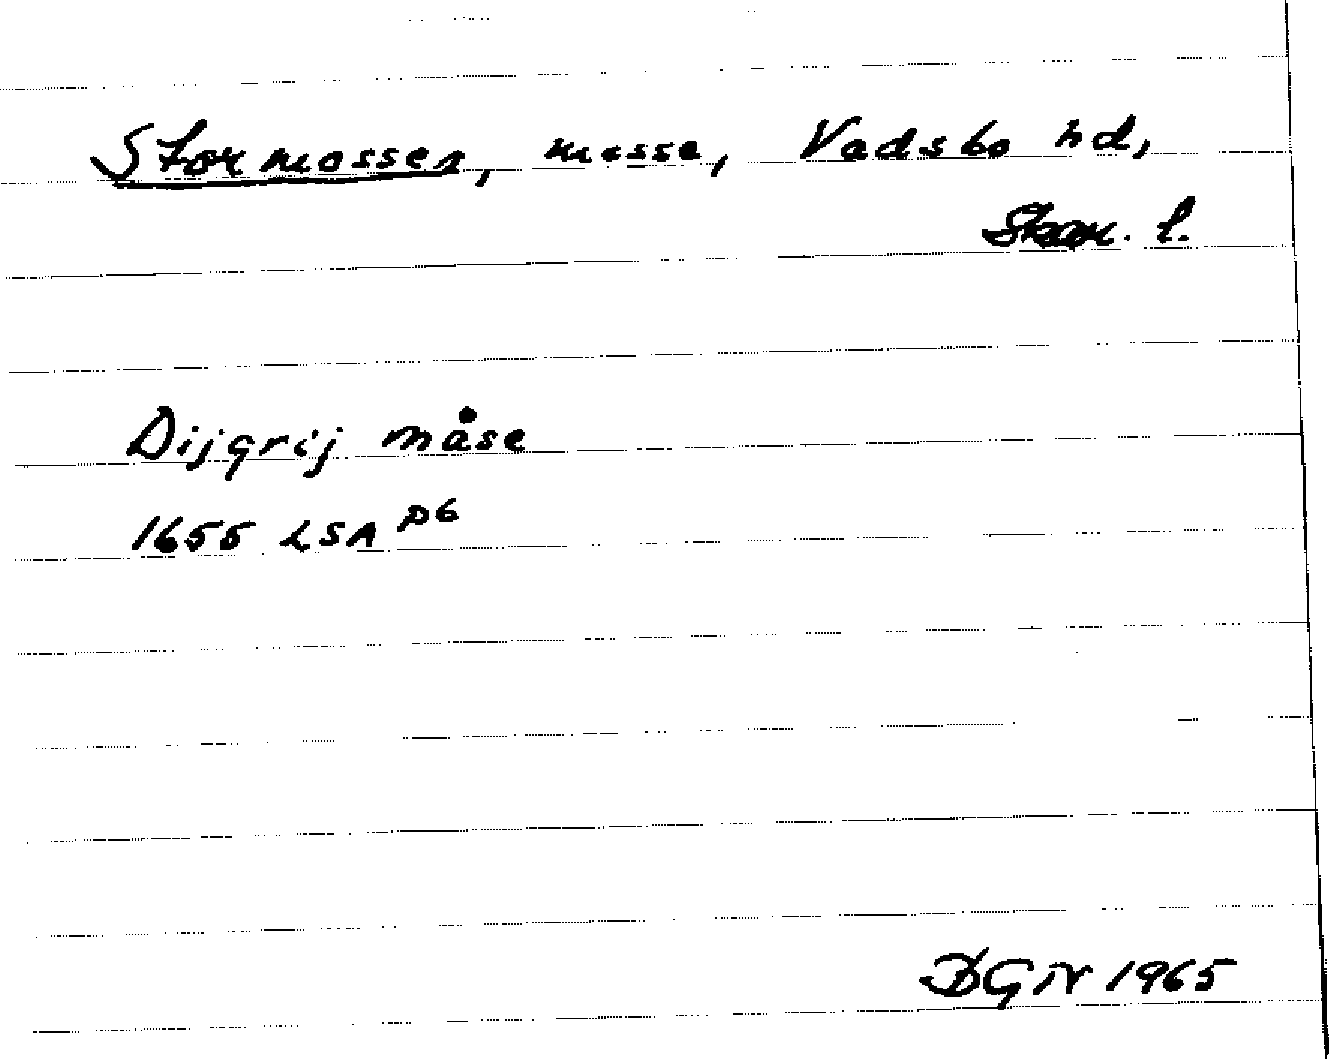 Stormossen, mosse, Vadsbo hd,
Skar. l.
Dijgrij måse
1655 LSA D6
1965